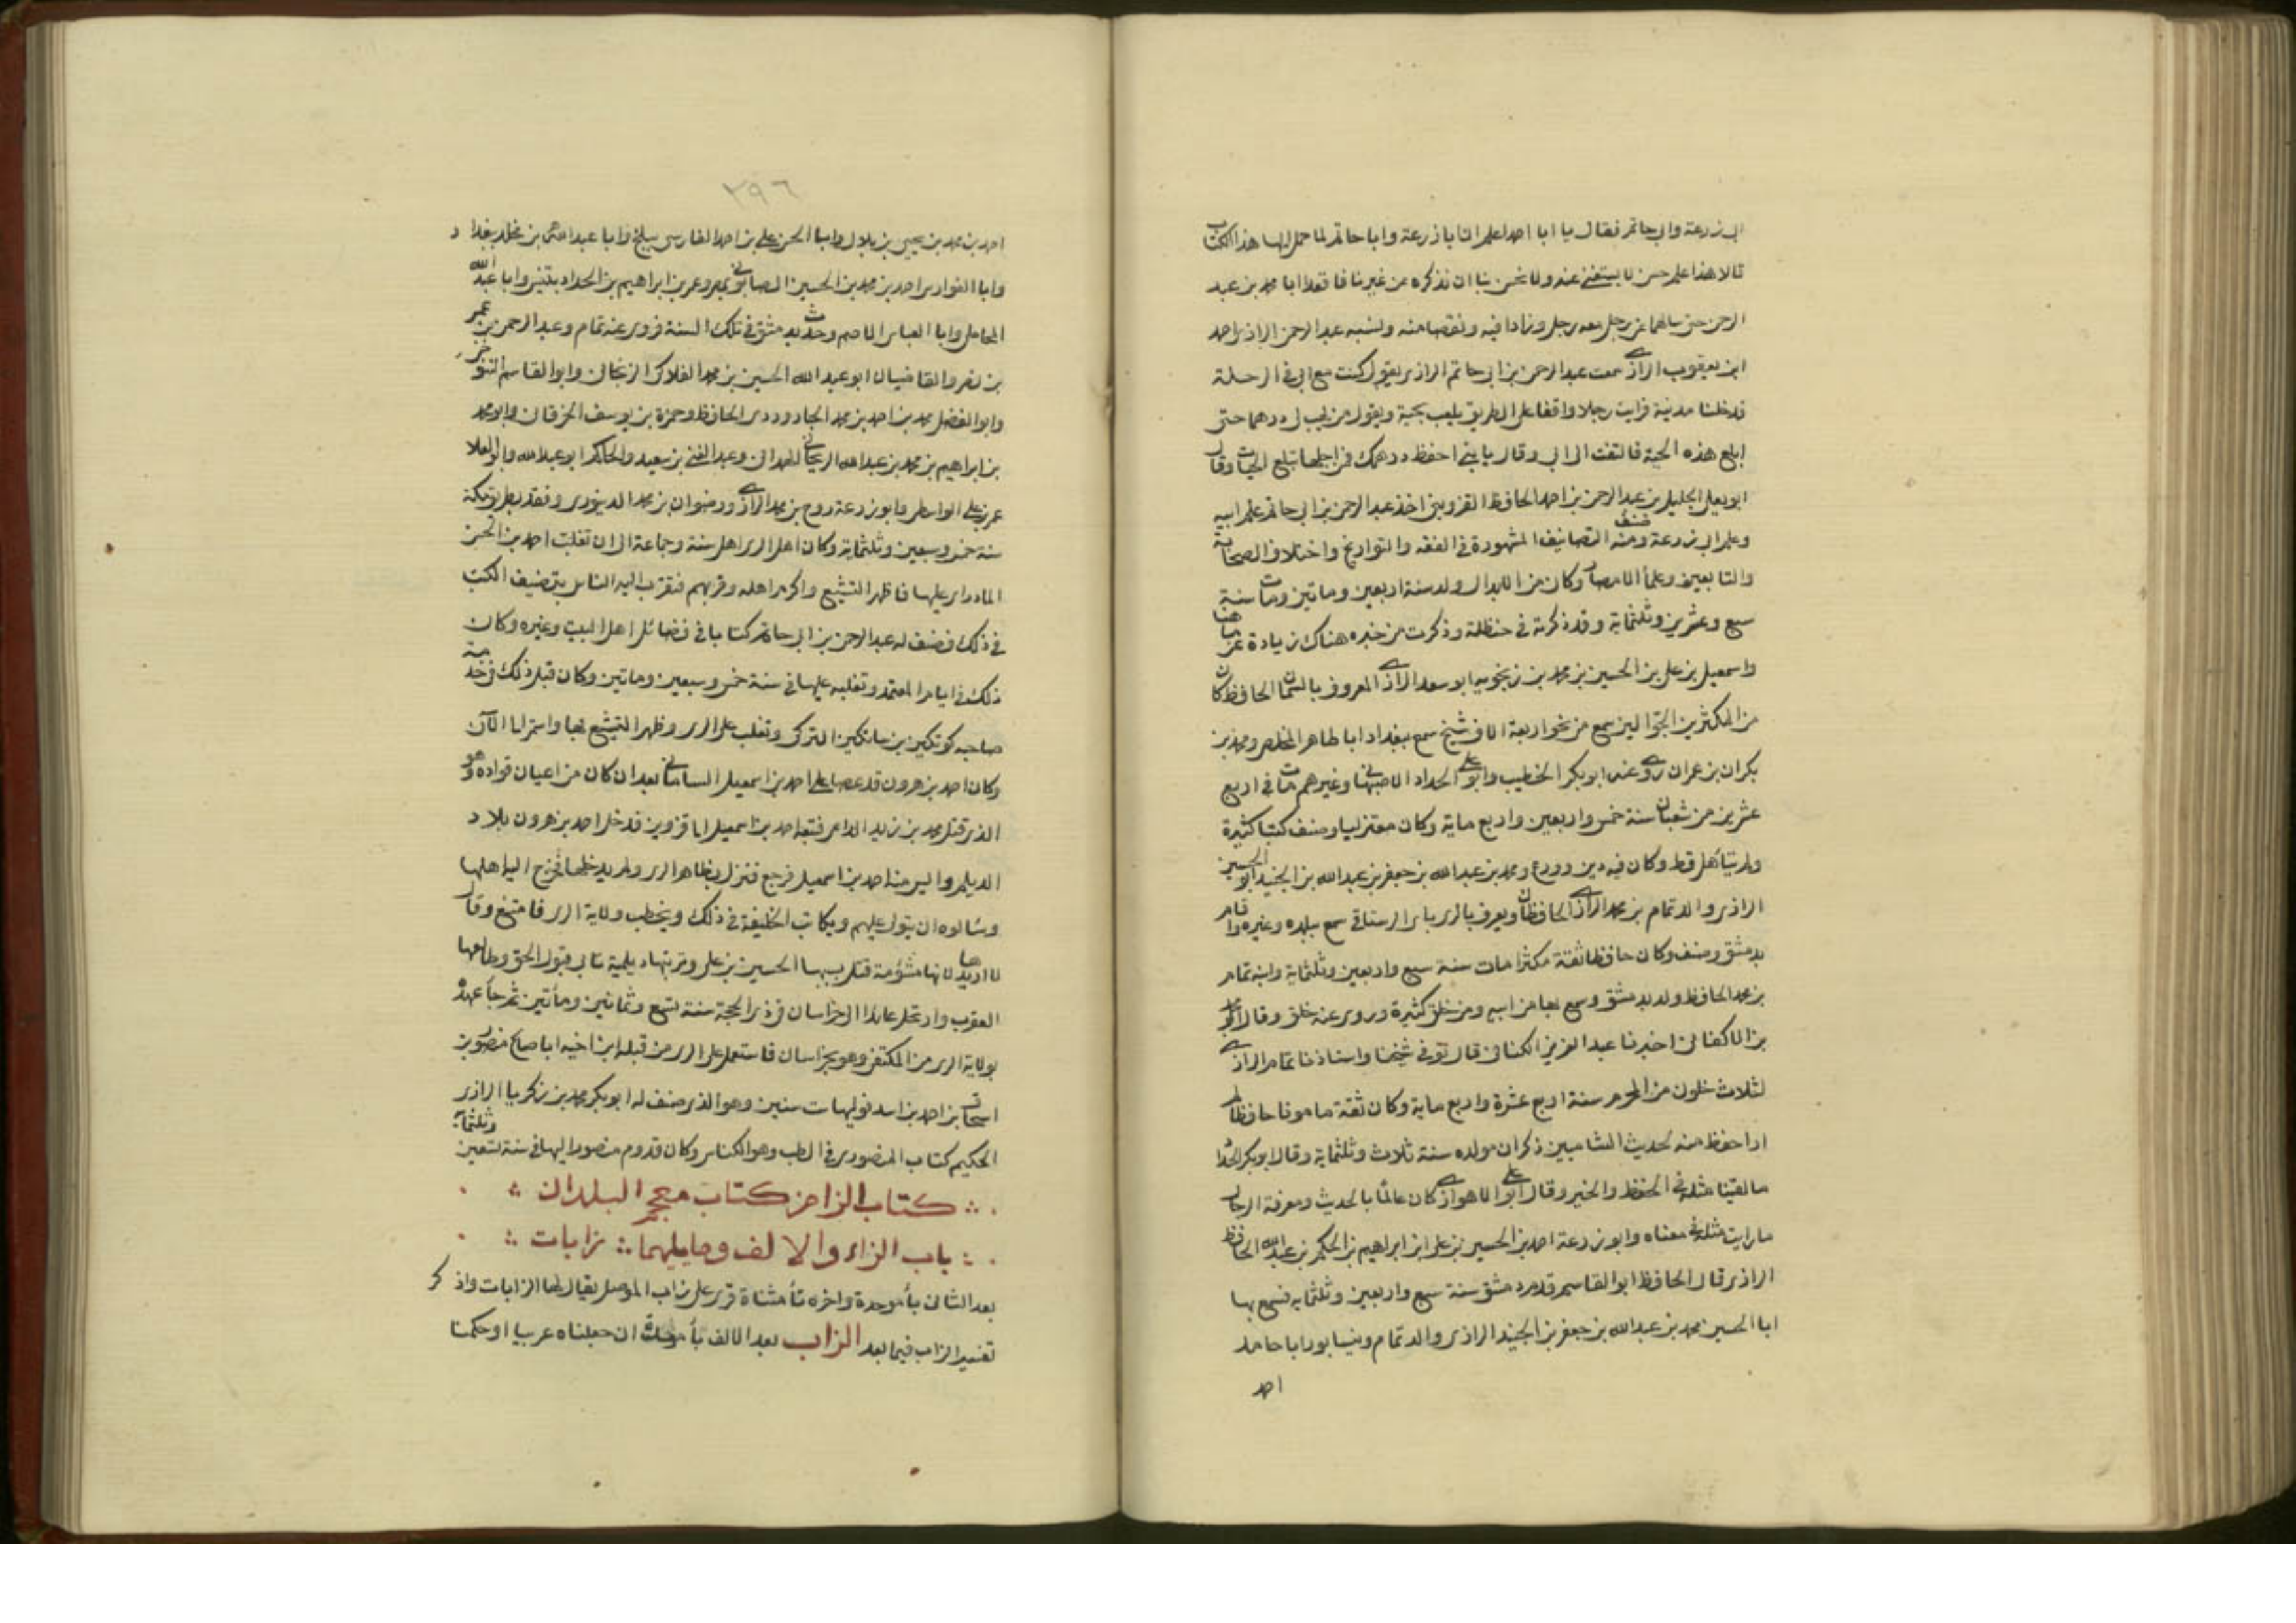 ابى زرعة وابى حاتم فقال يا ابا احمد اعلم ان ابا زرعة وابا حاتم لما حمل اليهما هذا الكتاب
قالا هذا علم حسن لا يستغنى عنه ولا يحسن بنا ان نذكره عن غيرنا فاقعدا ابا محمد بن عبد
الرحمن حتى سالهما عن رجل معه رجل وزادا فيه ونقصا منه ونسبه عبد الرحمن الرازى احمد
ابن يعقوب الرازى سمعت عبد الرحمن بن ابى حاتم الرازى يقول كنت مع ابى فى الرحلة
فدخلنا مدينة فرايت رجلا واقفا على الطريق يلعب بحية ويقول من يهب لى درهما حتى
ابلع هذه الحية فالتفت الى ابى وقال يا بنى احفظ درهمك فمن اجلها تبلع الحيات وقال
ابو يعلى الجليل بن عبد الرحمن بن احمد الحافظ القزوينى اخذ عبد الرحمن بن ابى حاتم علم ابيه
وعلم ابى زرعة وصنف منه التصانيف المشهورة فى الفقه والتواريخ واختلاف الصحابة
والتابعين وعلمأ الامصار وكان من الابدال ولد سنة اربعين وماتين ومات سنة
سبع وعشرين وثلثماية وقد ذكرته فى حنظلة وذكرت من خبره هناك زيادة عن ما هنا
واسمعيل بن على بن الحسين بن محمد بن زنجويه ابو سعد الرازى المعروف بالسمان الحافظ كان
من المكثرين الجوالين سمع من نحو اربعة الاف شيخ سمع ببغداد ابا طاهر المخلص ومحمد بن
بكران بن عمران روى عنه ابو بكر الخطيب وابو على الحداد الاصبهانى وغيرهم مات فى اربع
عشرين من شعبان سنة خمس واربعين واربع ماية وكان معتزليا وصنف كتبا كثيرة
ولم يتأهل قط وكان فيه دين وورع ومحمد بن عبد الله بن جعفر بن عبد الله بن الجنيد ابو الحسين
الرازى والد تمام بن محمد الرازى الحافظان ويعرف بالرى بابى الرستاقى سمع ببلده وغيره واقام
بدمشق وصنف وكان حافظا ثقة مكثرا مات سنة سبع واربعين وثلثماية وابنه تمام
بن محمد الحافظ ولد بدمشق وسمع بها من ابيه ومن خلق كثيرة وروى عنه خلق وقال ابو محمد
بن الاكفانى اخبرنا عبد العزيز الكنانى قال توفى شيخنا واستاذنا تمام الرازى
لثلاث خلون من المحرم سنة اربع عشرة واربع ماية وكان ثقة مامونا حافظا لم
ار احفظ منه لحديث الشاميين ذكر ان مولده سنة ثلاث وثلثماية وقال ابو بكر الحداد
ما لقينا مثله فى الحفظ والخير وقال ابو على الاهوازى كان عالما بالحديث ومعرفة الرجال
ما رايت مثله فى معناه وابو زرعة احمد بن الحسين بن على ابن ابراهيم بن الحكم بن عبد الله الحافظ
الرازى قال الحافظ ابو القاسم قدم دمشق سنة سبع واربعين وثلثمايه فسمع بها
ابا الحسين محمد بن عبد الله بن جعفر بن الجنيد الرازى والد تمام ونيسابور ابا حامد
احمد
٢٩٦
احمد بن محمد بن يحيى بن بلال وابا الحسن على بن احمد الفارسى ببلخ وابا عبد الله محمد بن مخلد ببغداد
وابا الفوارس احمد بن محمد بن الحسين الصابونى بمصر وعمر بن ابراهيم بن الحداد بتنيس وابا عبد الله
المحاملى وابا العباس الاصم وحدث بدمشق فى تلك السنة فروى عنه تمام وعبد الرحمن بن عمر
بن نصر والقاضيان ابو عبد الله الحسين بن محمد الفلاكى الزنجانى وابو القاسم التنوخى
وابو الفضل محمد بن احمد بن محمد الجارودى الحافظ وحمزة بن يوسف الخرقانى وابو محمد
بن ابراهيم بن محمد بن عبد الله الريحانى الهمدانى وعبد الغنى بن سعيد والحاكم ابو عبد الله وابو العلا
عمر بن على الواسطى وابو زرعة روح بن محمد الرازى ورضوان بن محمد الدينورى وفقد بطريق مكة
سنة خمس وسبعين وثلثماية وكان اهل الرى اهل سنة وجماعة الى ان تغلبت احمد بن الحسن
الماردانى عليها فاظهر التشيع واكرم اهله وقربهم فتقرب اليه الناس بتصنيف الكتب
فى ذلك فصنف له عبد الرحمن بن ابى حاتم كتابا فى فضائل اهل البيت وغيره وكان
ذلك فى ايام المعتمد وتغلبه عليها فى سنة خمس وسبعين وماتين وكان قبل ذلك فى خدمة
صاحبه كوتكين بن ساتكين التركى وتغلب على الرى وظهر التشيع بها واستمر الى الآن
وكان احمد بن هرون قد عصا على احمد بن اسمعيل السامانى بعد ان كان من اعيان قواده وهو
الذى قتل محمد بن زيد الداعى فتبعه احمد بن اسمعيل الى قزوين فدخل احمد بن هرون بلاد
الديلم وايس منه احمد بن اسمعيل فرجع فنزل بظاهر الرى ولم يدخلها فخرج اليه اهلها
وسالوه ان يتولى عليهم ويكاتب الخليفة فى ذلك ويخطب ولاية الرى فامتنع وقال
لا اريدها لانها مشؤمة قتل بسببها الحسين بن على وتربتها ديلمية تابى قبول الحق وطالعها
العقرب وارتحل عائدا الى خراسان فى ذى الحجة سنة تسع وثمانين ومأتين ثم جأ عهده
بولاية الرى من المكتفى وهو بخراسان فاستعمل على الرى من قبله ابن اخيه ابا صالح منصور بن
اسحاق بن احمد بن اسد فوليها ست سنين وهو الذى صنف له ابو بكر محمد بن زكريا الرازى
الحكيم كتاب المنصورى فى الطب وهو الكناس وكان قدوم منصور اليها فى سنة تسعين وثلثماية
كتاب الزا من كتاب معجم البلدان
باب الزاء والالف وما يليهما زابات
بعد الثانى بأ موحدة واخره تأ مثناة قرى على زاب الموصل يقال لها الزابات واذكر
تفسير الزاب فيما بعد الزاب بعد الالف بأ موحدة ان جعلناه عربيا او حكمنا